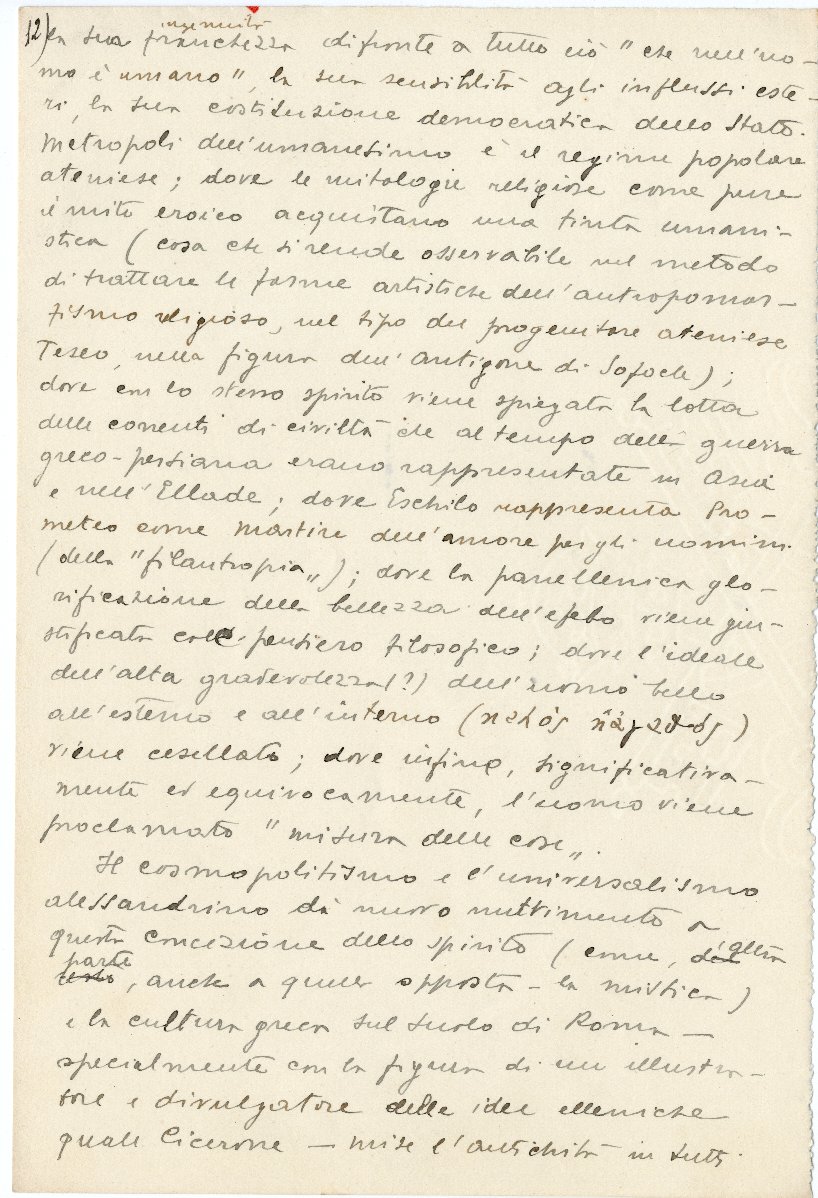 ingenuità
12) la sua franchezza difronte a tutto ciò "che nell'uo-
mo è umano", la sua sensibilità agli influssi este-
ri, la sua costituzione democratica dello Stato.
Metropoli dell'umanesimo è il regime popolare
ateniese; dove le mitologie religiose come pure
il mito eroico acquistano una tinta umani-
stica (cosa che si rende osservabile nel metodo
di trattare le forme artistiche dell'antropomor-
fismo religioso, nel tipo del progenitore ateniese
Teseo, nella figura dell'Antigone di Sofocle);
dove con lo stesso spirito viene spiegata la lotta
delle correnti di civiltà che al tempo della guerra
greco-persiana erano rappresentate in Asia
e nell'Ellade; dove Eschilo rappresenta Pro-
meteo come martire dell'amore per gli uomini
(della "filantropia„); dove la panellenica glo-
rificazione della bellezza dell'efebo viene giu-
stificata col pensiero filosofico; dove l'ideale
dell'alta gradevolezza(?) dell'uomo bello
all'esterno e all'interno (
viene cesellato; dove infine, significativa-
mente ed equivocamente, l'uomo viene
proclamato "misura delle cose„.
Il cosmopolitismo e l'universalismo
alessandrino dà nuovo nutrimento a
questa concezione dello spirito (come, d'altra
parte, anche a quella opposta - la mistica)
e la cultura greca sul suolo di Roma —
specialmente con la figura di un illustra-
tore e divulgatore delle idee elleniche
quale Cicerone — mise l'antichità in tutti